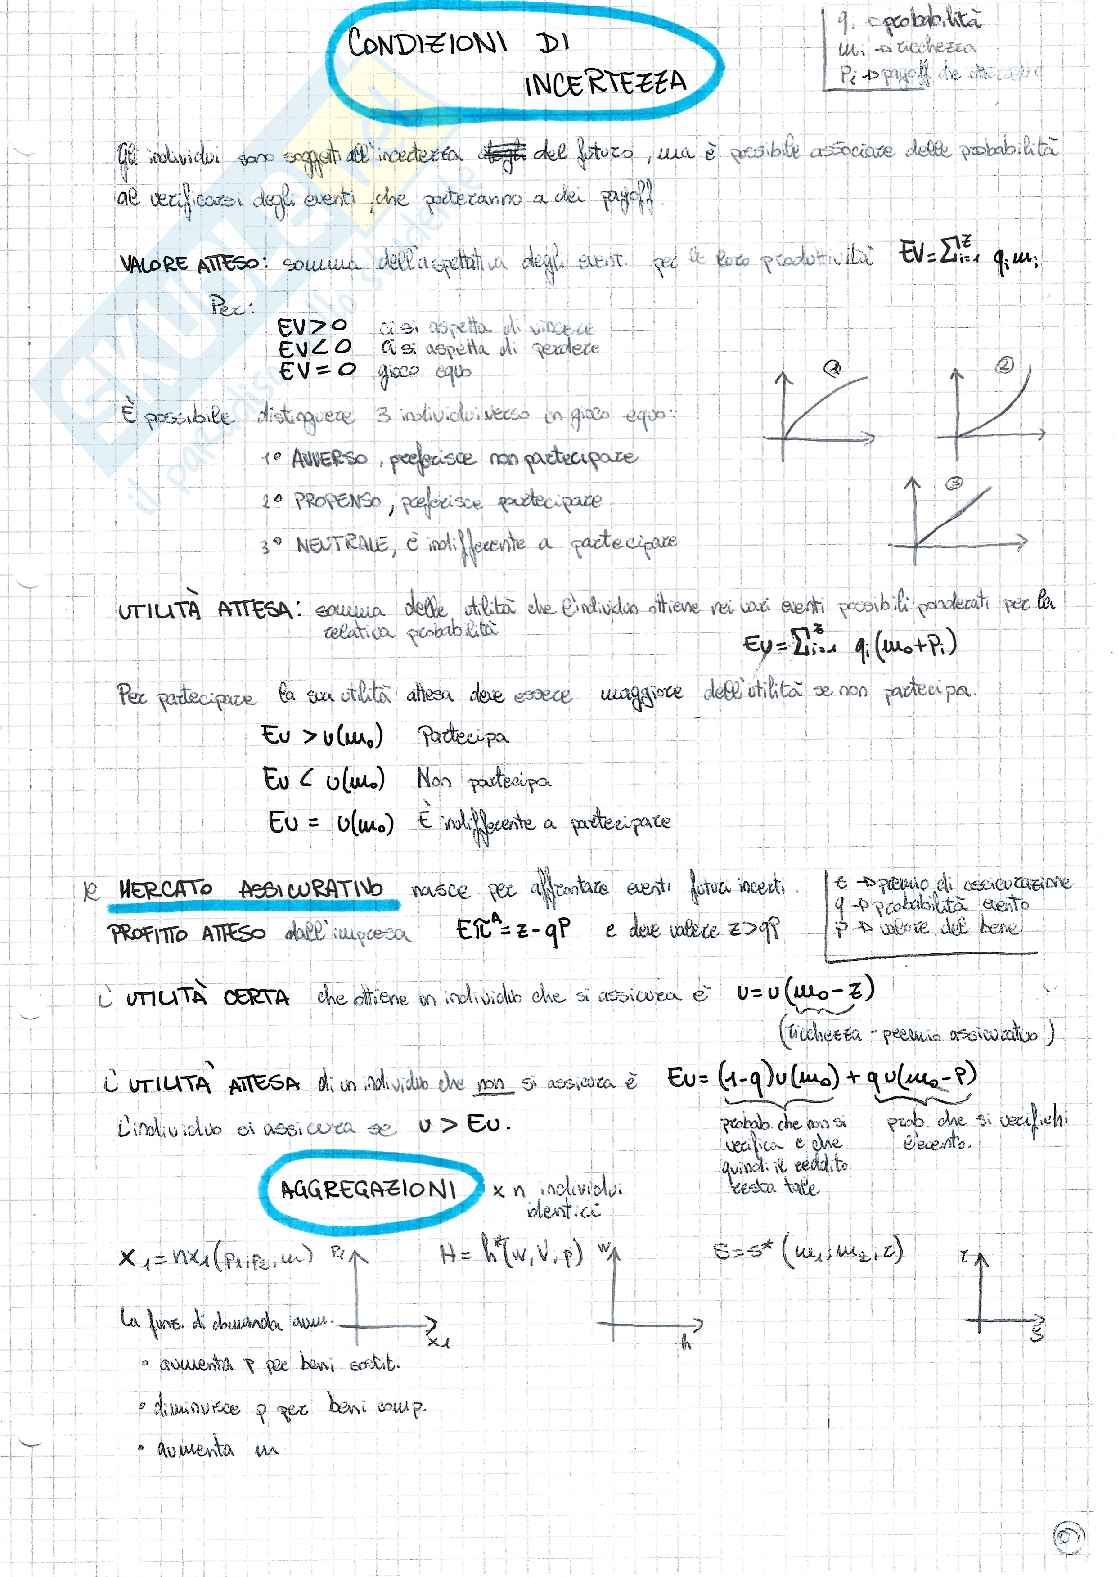 CONDIZIONI DI
INCERTEZZA
qi → probabilità
mi → ricchezza
Pi → payoff
Gli individui sono soggetti all'incertezza del futuro, ma è possibile associare delle probabilità
al verificarsi degli eventi, che porteranno a dei payoff.
VALORE ATTESO: somma dell'aspettativa degli eventi per le loro produttività EV=∑ᶻi=1 qi mi
Per:
EV>0 ci si aspetta di vincere
EV<0 ci si aspetta di perdere
EV=0 gioco equo
È possibile distinguere 3 individui verso un gioco equo:
1° AVVERSO, preferisce non partecipare
2° PROPENSO, preferisce partecipare
3° NEUTRALE, è indifferente a partecipare
1
2
3
UTILITÀ ATTESA: somma delle utilità che l'individuo ottiene nei vari eventi possibili ponderati per la
relativa probabilità
EU=∑ᶻi=1 qi(m0+Pi)
Per partecipare la sua utilità attesa deve essere maggiore dell'utilità se non partecipa.
EU > U(m0) Partecipa
EU < U(m0) Non partecipa
EU = U(m0) È indifferente a partecipare
Il MERCATO ASSICURATIVO nasce per affrontare eventi futuri incerti.
z → premio di assicurazione
q → probabilità evento
P → valore del bene
PROFITTO ATTESO dell'impresa Eπᴬ=z-qP e deve valere z>qP
L'UTILITÀ CERTA che ottiene un individuo che si assicura è U=U(m0-z)
(ricchezza - premio assicurativo)
L'UTILITÀ ATTESA di un individuo che non si assicura è EU=(1-q)U(m0)+qU(m0-P)
L'individuo si assicura se U>EU.
probab. che non si
verifica e che
quindi il reddito
resta tale
prob. che si verifichi
l'evento.
AGGREGAZIONI x n individui
identici
X1=nx1(p1,p2,m)
P1
x1
H=h*(w,V,p)
w
h
S=s*(m1,m2,r)
r
S
La funz. di domanda aum.
• aumenta p per beni sostit.
• diminuisce p per beni comp.
• aumenta m
SKUOLA
il paradiso dello studente